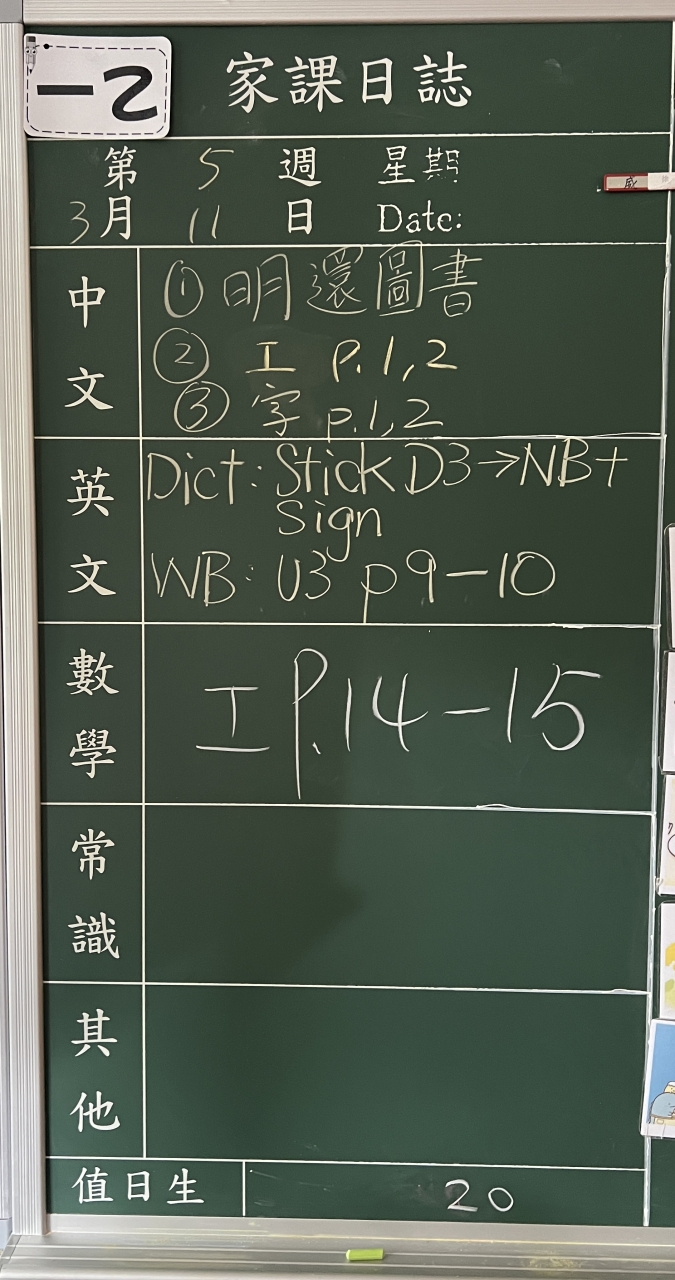 一乙
家課日誌
第 5 週 星期
3月 11 日 Date:
中文
① 明還圖書
② 工 P.1,2
③ 字 p.1,2
英文
Dict: Stick D3→NB+
Sign
WB: U3 p9-10
數學
工 P.14-15
常識
其他
值日生 20